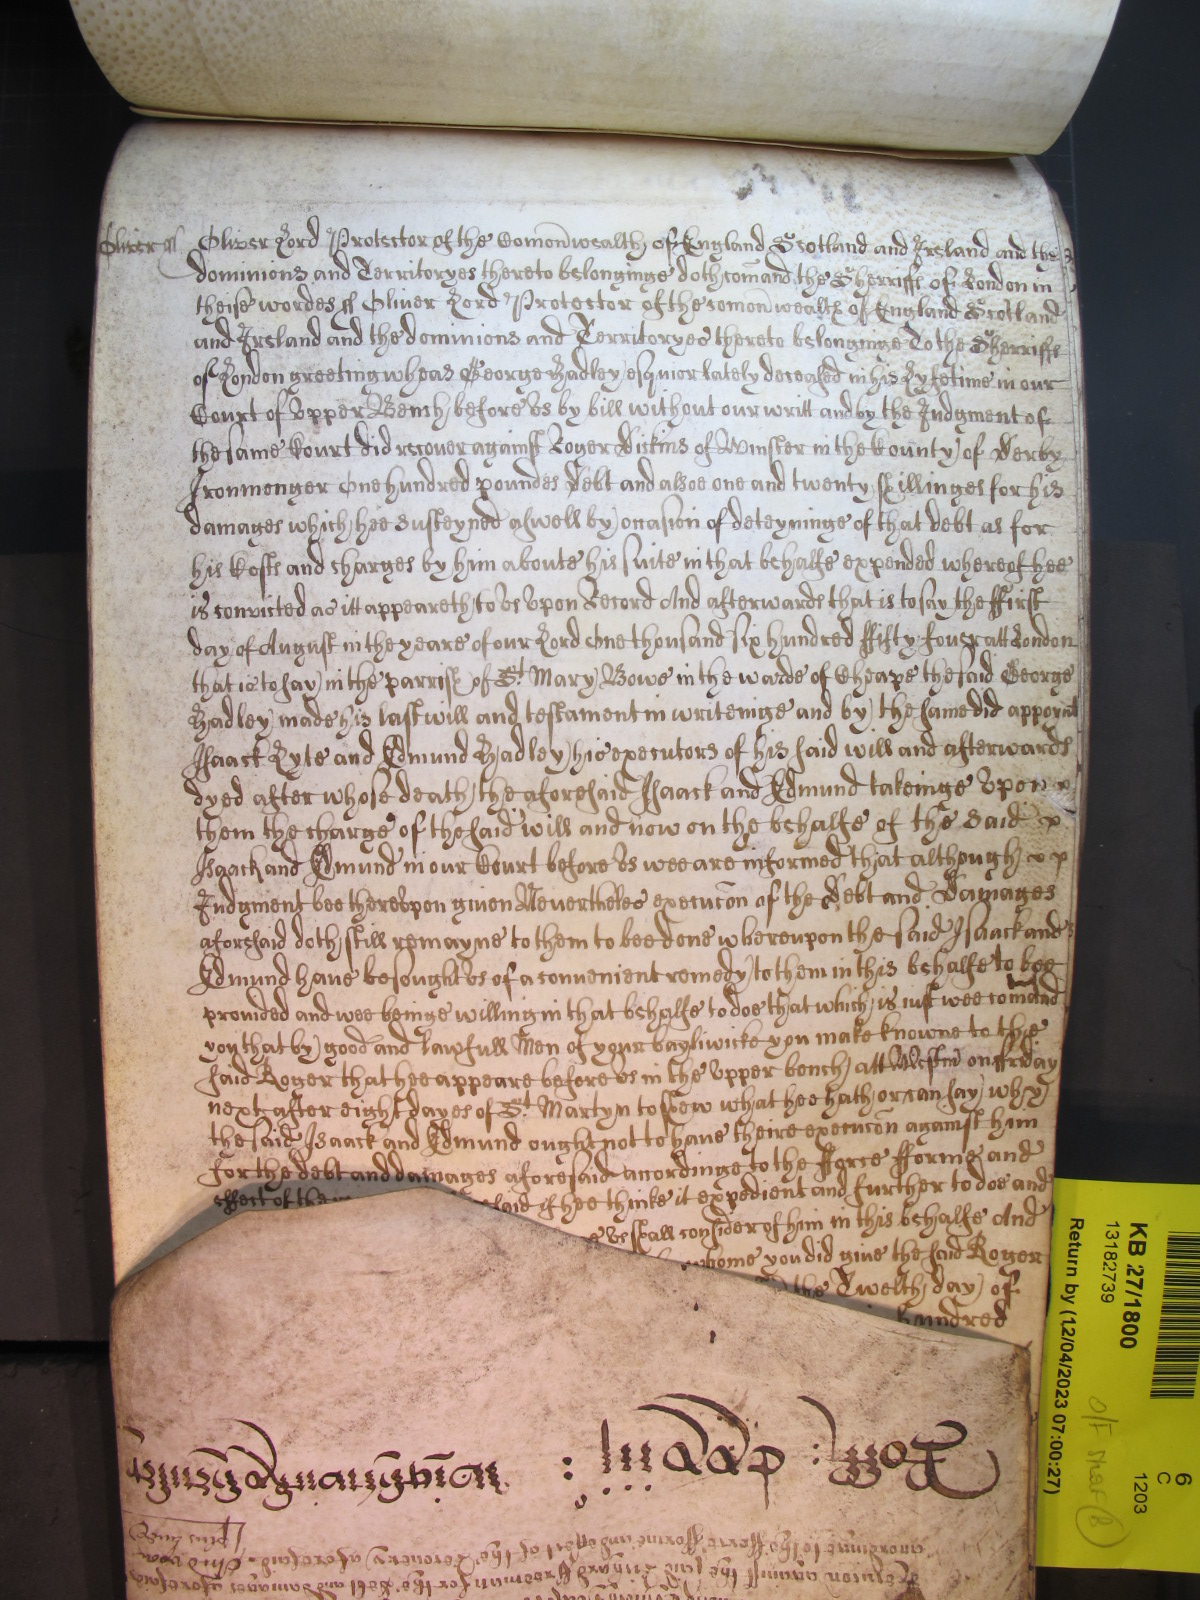 Oliver
Oliver Lord Protector of the Comonwealth of England Scotland and Ireland and the
dominions and Territoryes thereto belonginge doth comand the Sherriffe of London in
theise wordes ss Oliver Lord Protector of the comonwealth of England Scotland
and Ireland and the dominions and Territoryes thereto belonginge To the Sherriffe
of London greeting wheras George Hadley esquior lately deceased in his Lyfetime in our
Court of Vpper Bench before vs by bill without our writt and by the Judgment of
the same Court did recover against Roger Dickins of Winster in the County of Derby
Ironmenger One hundred poundes debt and alsoe one and twenty shillinges for his
damages which hee susteyned aswell by occasion of deteyninge of that debt as for
his Costs and charges by him aboute his suite in that behalfe expended whereof hee
is convicted as itt appeareth to vs vpon Record And afterwards that is to say the ffirst
day of August in the yeare of our Lord One thousand six hundred ffifty fouer att London
that is to say in the parrish of St. Mary Bowe in the warde of Cheape the said George
Hadley made his last will and testament in writeinge and by the same did appoynt
Isaack Lyte and Edmund Hadley his executors of his said will and afterwards
dyed after whose death the aforesaid Isaack and Edmund takeinge vpon
them the charge of the said will and now on the behalfe of the said
Isaack and Edmund in our Court before vs wee are informed that although
Judgment bee therevpon given Neverthelesse execucon of the debt and Damages
aforesaid doth still remayne to them to bee done whereupon the said Isaack and
Edmund have besought vs of a convenient remedy to them in this behalfe to bee
provided and wee beinge willing in that behalfe to doe that which is just wee comand
you that by good and lawfull Men of your bayliwicke you make knowne to the
said Roger that hee appeare before vs in the vpper bench att Westm on ffriday
next after eight dayes of St. Martyn to shew what hee hath or can say why
the said Isaack and Edmund ought not to have theire execucon against him
for the debt and damages aforesaid accordinge to the fforce fforme and
effect of the said if hee thinke it expedient and further to doe and
vs shall consider of him in this behalfe And
whome you did give the said Roger
the Twelth day of
hundred
KB 27/1800
13182739
Return by (12/04/2023 07:00:27)
6
C
1203